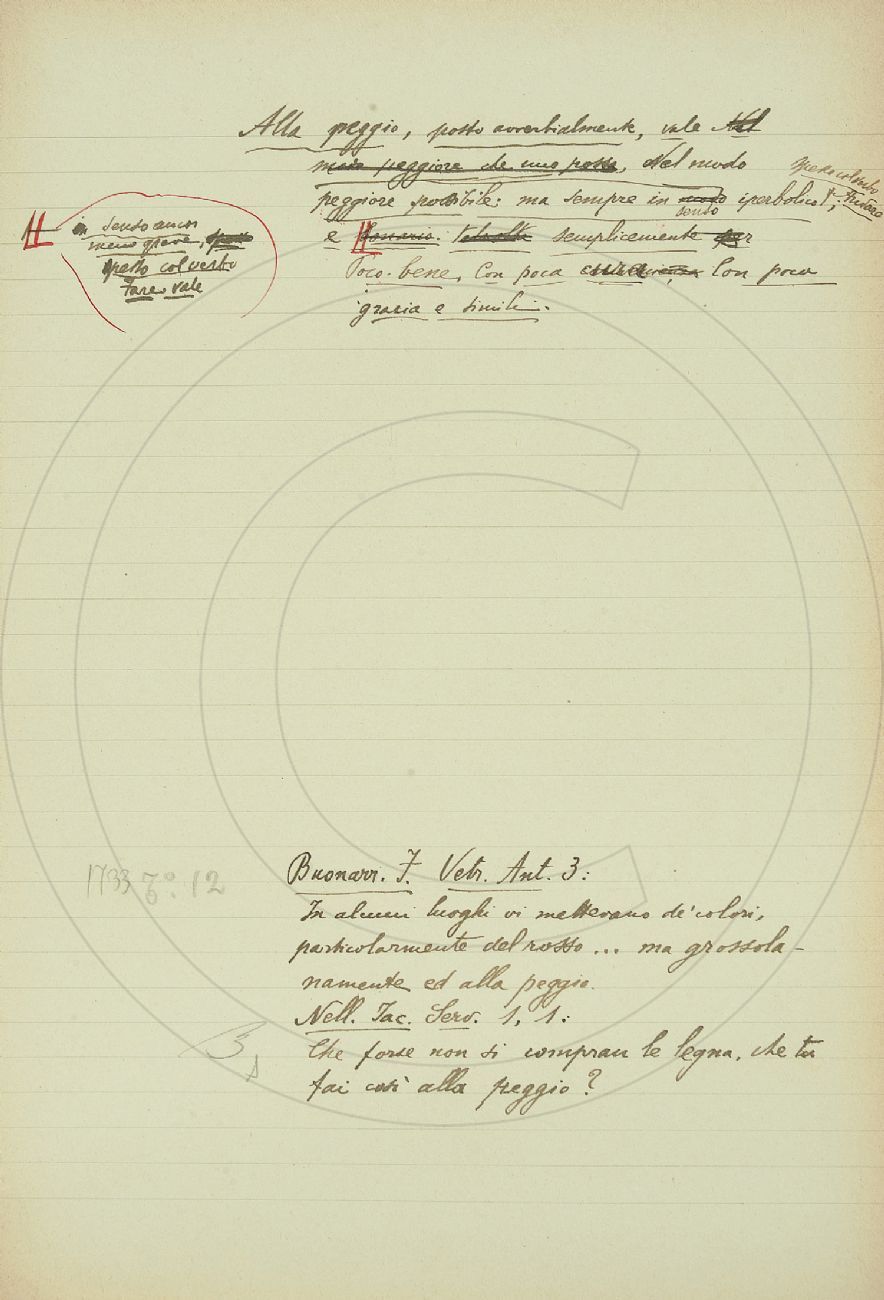 Alla peggio, posto avverbialmente, vale Nel
modo peggiore che uno possa, Nel modo
peggiore possibile: ma sempre in modo iperbolico;
senso
spesso col verbo
Trattare
e semplicemente per
Poco bene, Con poca Con poca
grazia e simili.
in senso ancor
meno grave,
spesso col verbo
Fare vale
1733 6° 12
Buonarr. F. Vetr. Ant. 3:
In alcuni luoghi vi mettevano de' colori,
particolarmente del rosso ... ma grossola-
namente ed alla peggio.
Nell. Iac. Serv. 1, 1:
Che forse non si compran le legna, che tu
fai così alla peggio?
3